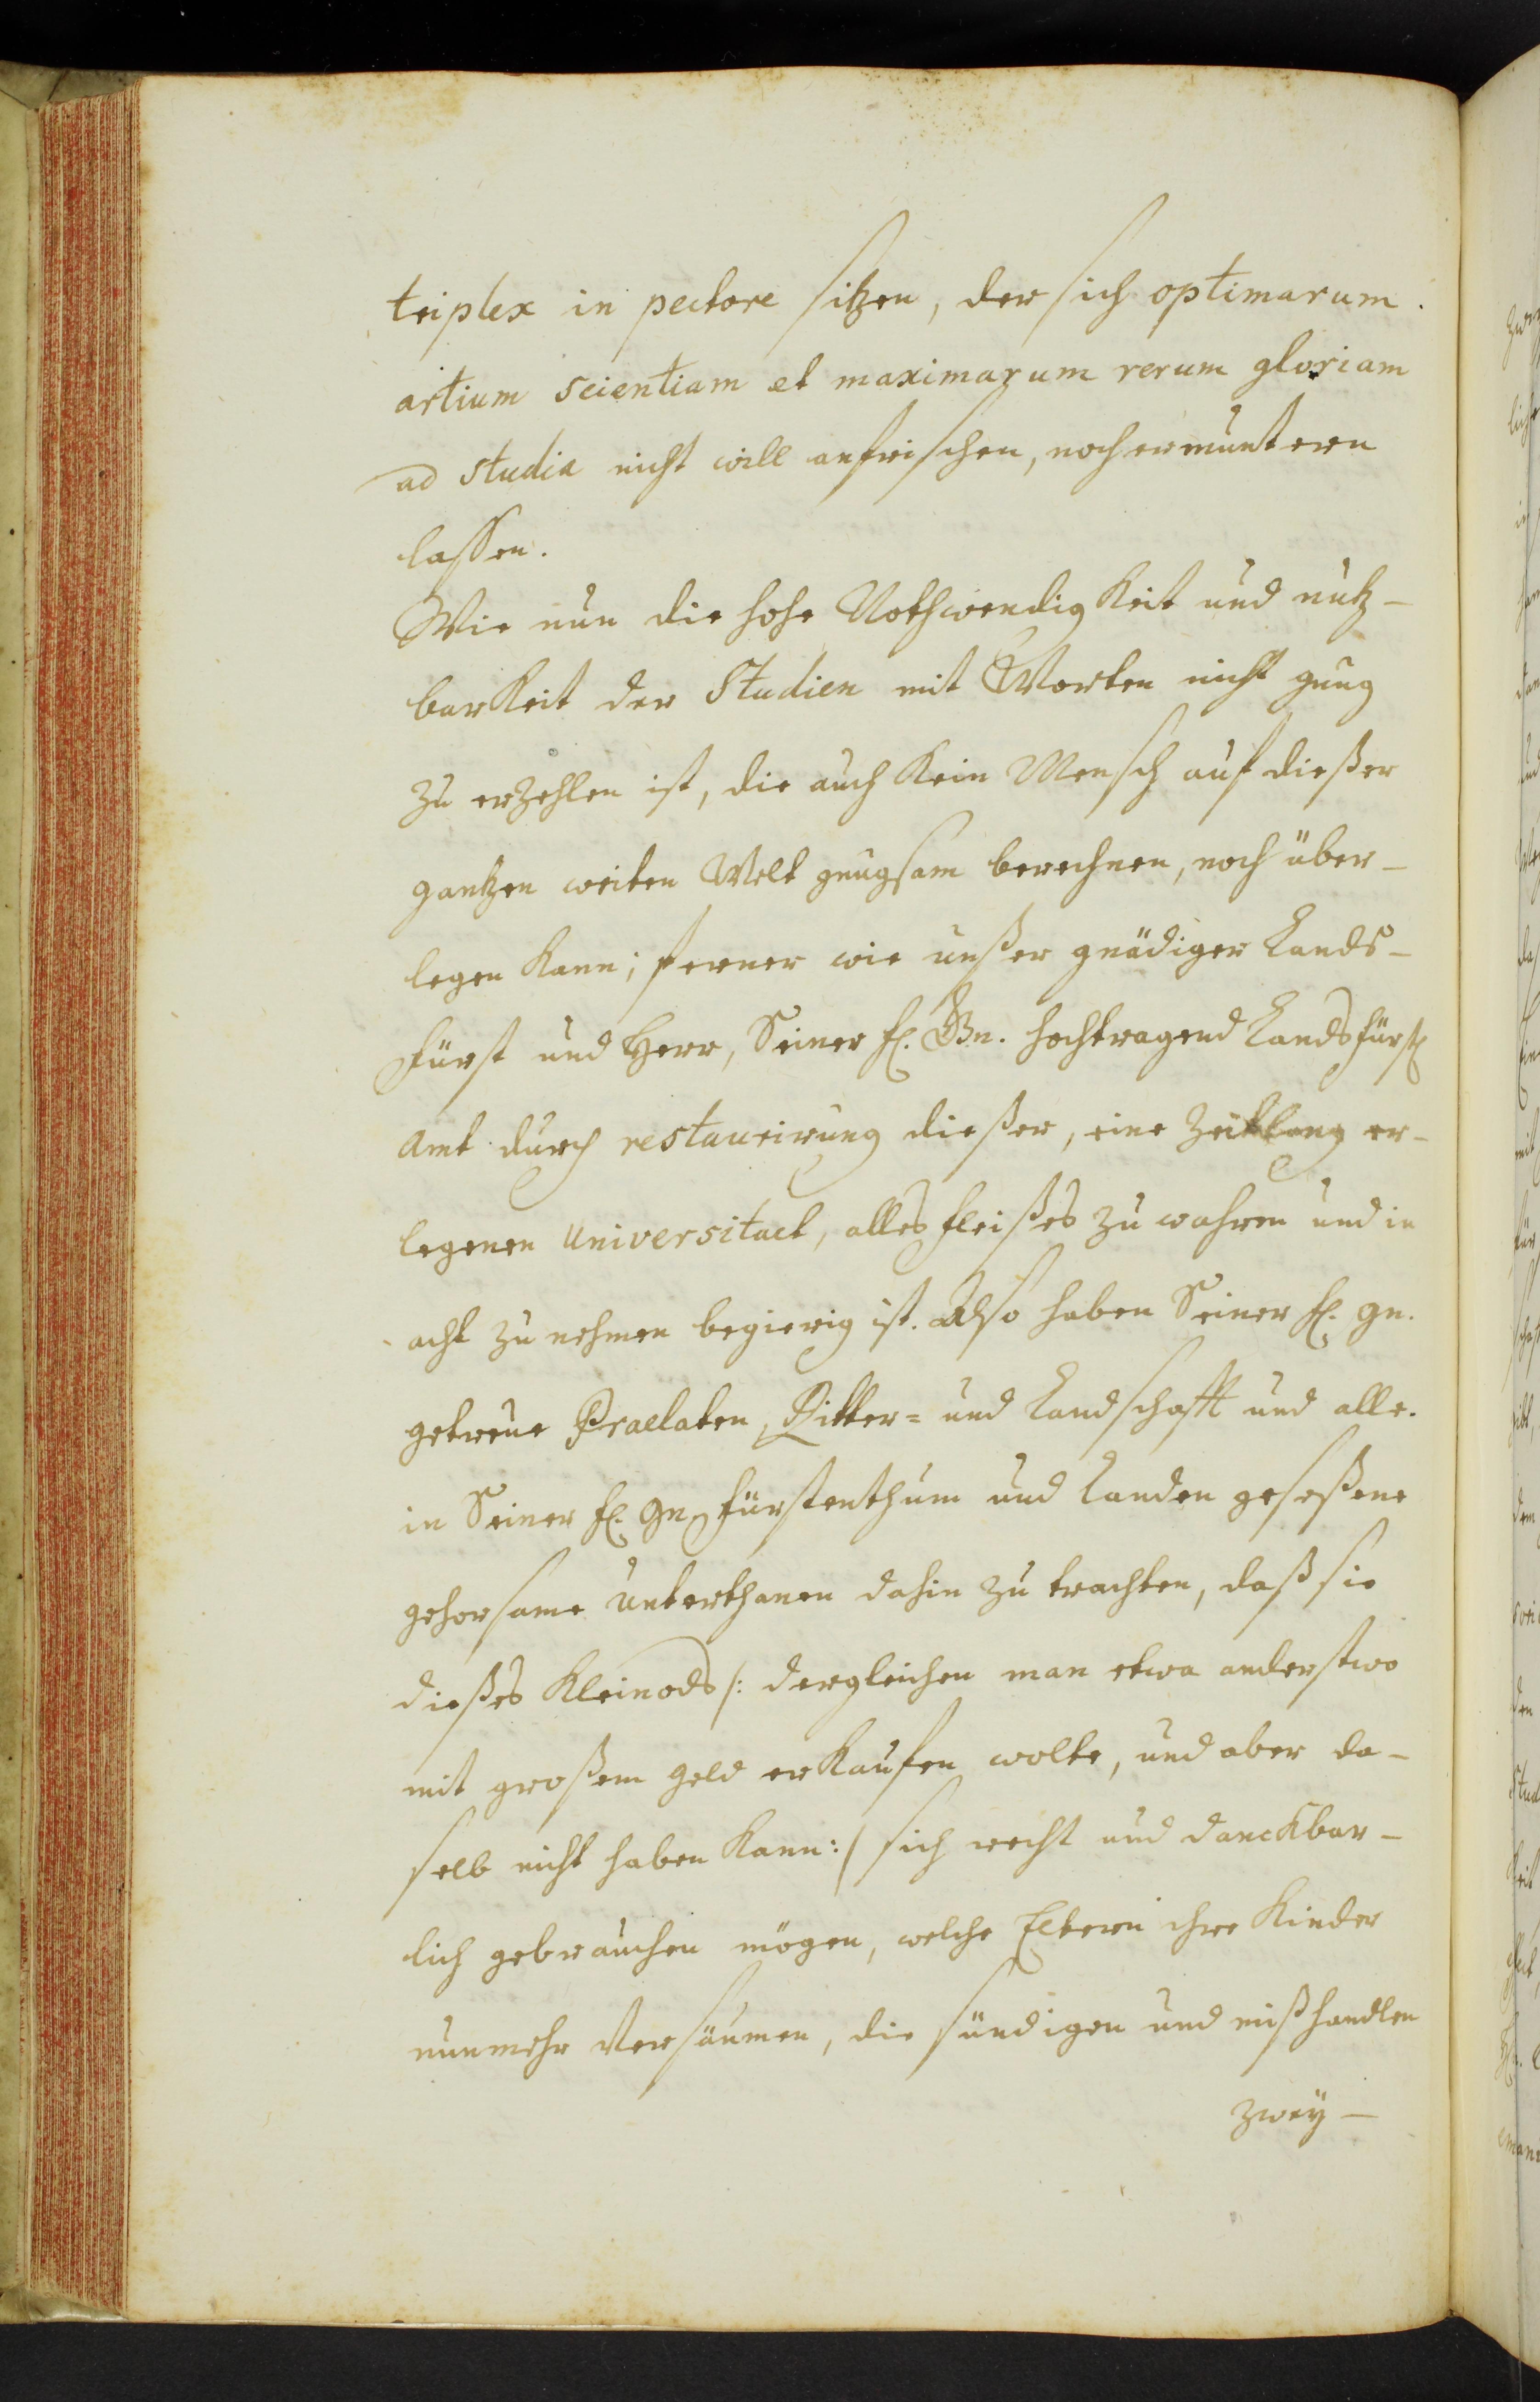 triplex in pectore sitzen, der sich optimarum
artium scientiam et maximarum rerum gloriam
ad studia nicht will anfrischen, noch ermuntern
lassen.
Wie nun die hohe Nothwendigkeit und nutz-
barkeit der Studien mit Worten nicht gnug
zu erzehlen ist, die auch kein Mensch auf dießer
gantzen weiten Welt gnugsam berechnen, noch über-
legen kann; ferner wie unßer gnädiger Lands-
Fürst und Herr, Seiner f. Gn. hochtragend Landsfürstl
Amt durch restaurirung dießer, eine Zeitlang er-
legenen Universitaet, alles fleißes zu wahren und in
acht zu nehmen begierig ist. Also haben Seiner f. gn.
getreue Praelaten, Ritter= und Landschafft und alle.
in Seiner f. gn. fürstenthum und Landen geseßene
gehorsame Unterthanen dahin zu trachten, daß sie
dießes Kleinods /: dergleichen man etwa anderstwo
mit großem geld erkaufen wolte, und aber da-
selb nicht haben kann :/ sich recht und danckbar-
lich gebrauchen mögen, welche Eltern ihre Kinder
nunmehr versäumen, die sündigen und mißhandlen
zweÿ-